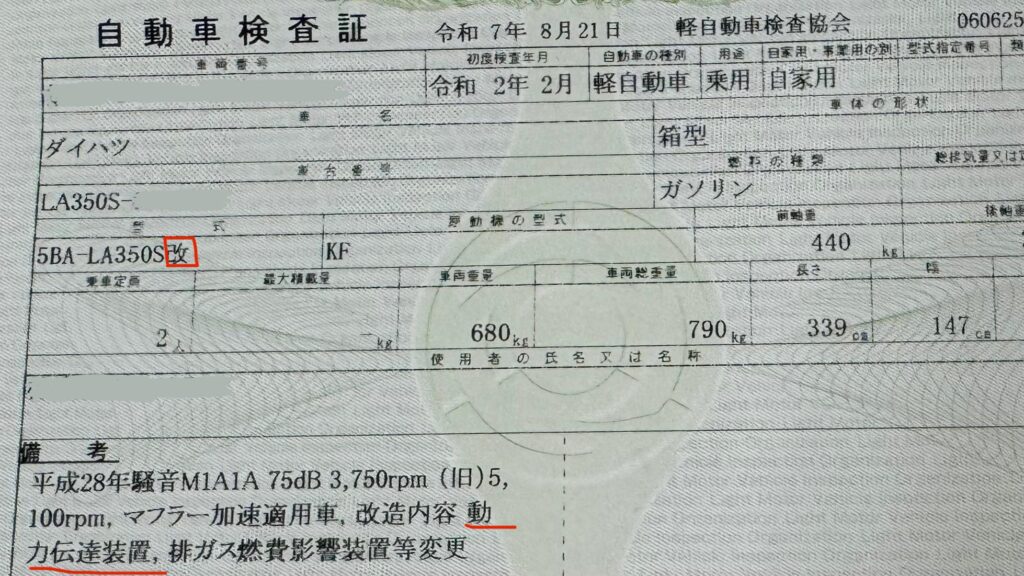 自動車検査証 令和 7年 8月21日 軽自動車検査協会 060625
車両番号 初度検査年月 自動車の種別 用途 自家用・事業用の別 型式指定番号 類
令和 2年 2月 軽自動車 乗用 自家用
車名 車体の形状
ダイハツ 箱型
車台番号 燃料の種類 総排気量又は定
LA350S- ガソリン
型式 原動機の型式 前軸重 後軸重
5BA-LA350S改 KF 440 kg
乗車定員 最大積載量 車両重量 車両総重量 長さ 幅
2人 －kg 680kg 790kg 339cm 147cm
使用者の氏名又は名称
備考
平成28年騒音M1A1A 75dB 3,750rpm (旧)5,
100rpm, マフラー加速適用車, 改造内容 動
力伝達装置, 排ガス燃費影響装置等変更